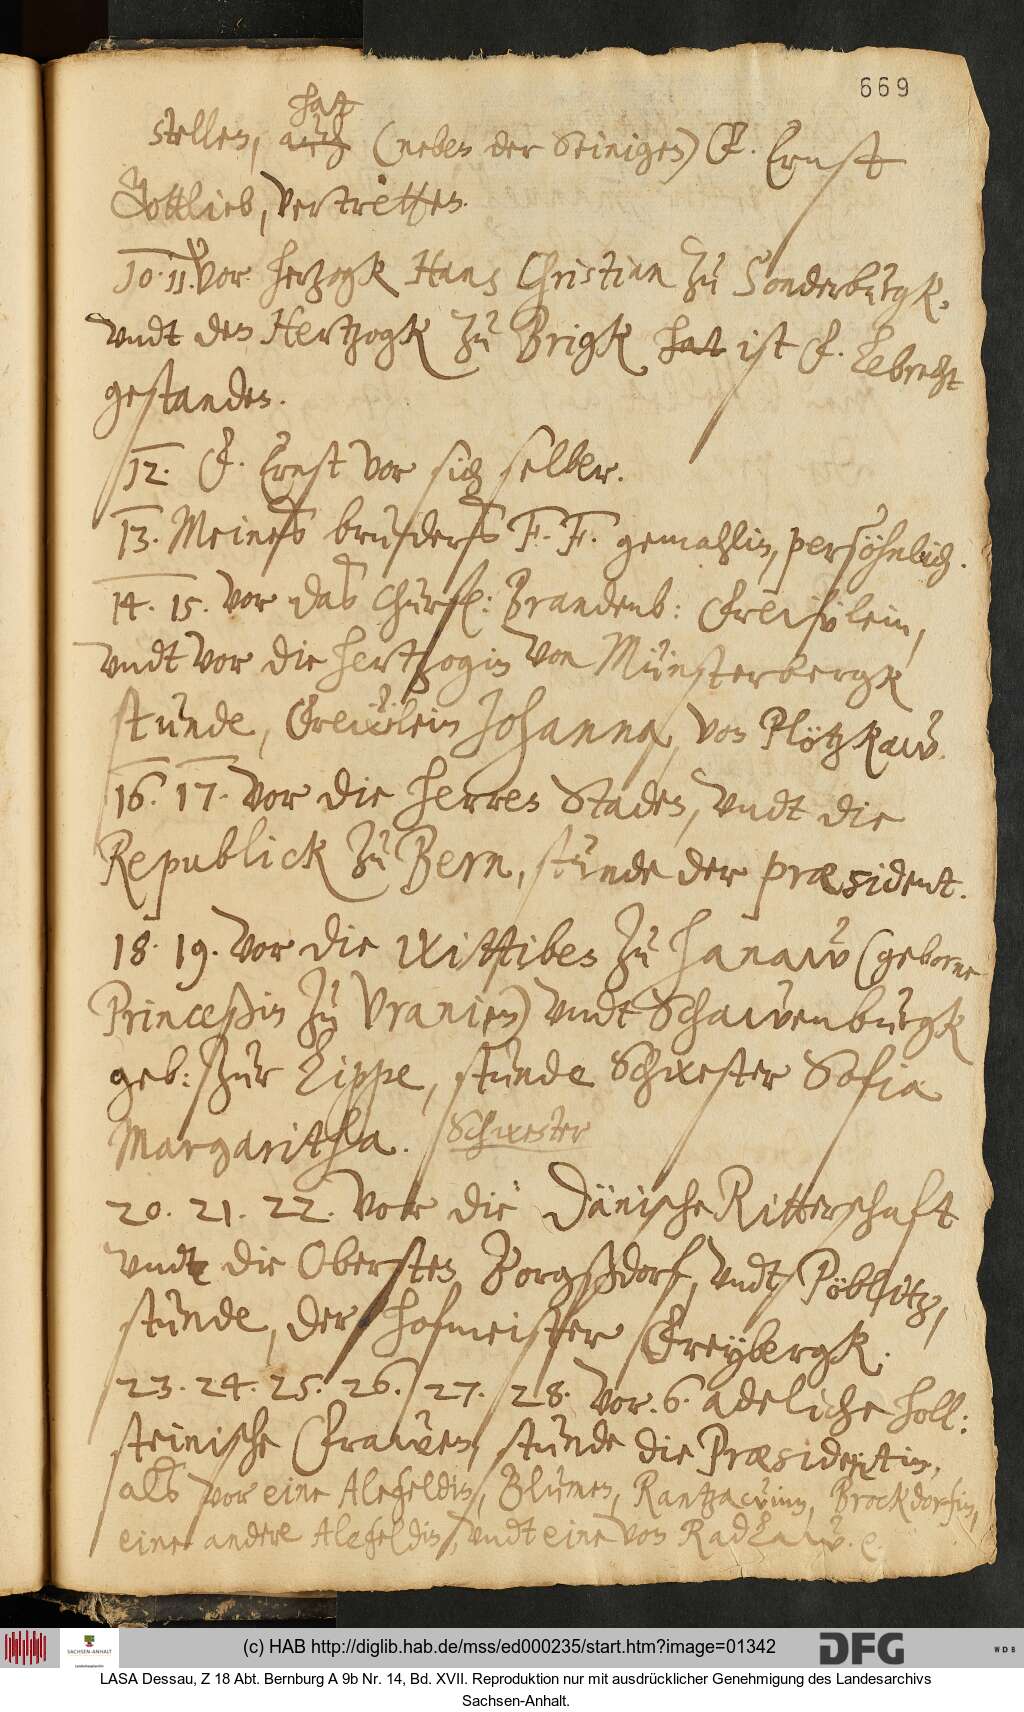 669
hat
stellen, auch (neben der Seinigen) F. Ernst
Gottlieb, vertretten.
10. 11. Vor hertzogk Hans Christian zu Sonderburgk,
vndt den Hertzogk zu Brigk hat ist F. Lebrecht
gestanden.
12. F. Ernst vor sich selber.
13. Meines bruders F. F. gemahlin, persöhnlich.
14. 15. Vor das Churfl: Brandenb: Freẅlein,
vndt vor die hertzogin von Münsterbergk
stunde, Freẅlein Johanna, von Plötzkaw.
16. 17. Vor die herren Staden, vndt die
Republick zu Bern, stunde der præsident.
18. 19. Vor die Wittiben zu hanaw (geborne
Princeßin zu Vranien) vndt Schawenburgk
geb: zur Lippe, stunde Schwester Sofia
Margaritha. Schwester
20. 21. 22. Vor die Dänische Ritterschaft
vndt die Obersten Borgßdorf, vndt Pöblitz,
stunde, der hofmeister Freybergk.
23. 24. 25. 26. 27. 28. Vor. 6. adeliche holl:
steinische Frawen, stunde die Præsidentin,
als vor eine Alefeldin, Blumen, Rantzawinn, Brockdorfin,
eine andere Alefeldin, vndt eine von Radlaw. e
(c) HAB http://diglib.hab.de/mss/ed000235/start.htm?image=01342
SACHSEN-ANHALT
DFG
WDB
LASA Dessau, Z 18 Abt. Bernburg A 9b Nr. 14, Bd. XVII. Reproduktion nur mit ausdrücklicher Genehmigung des Landesarchivs
Sachsen-Anhalt.